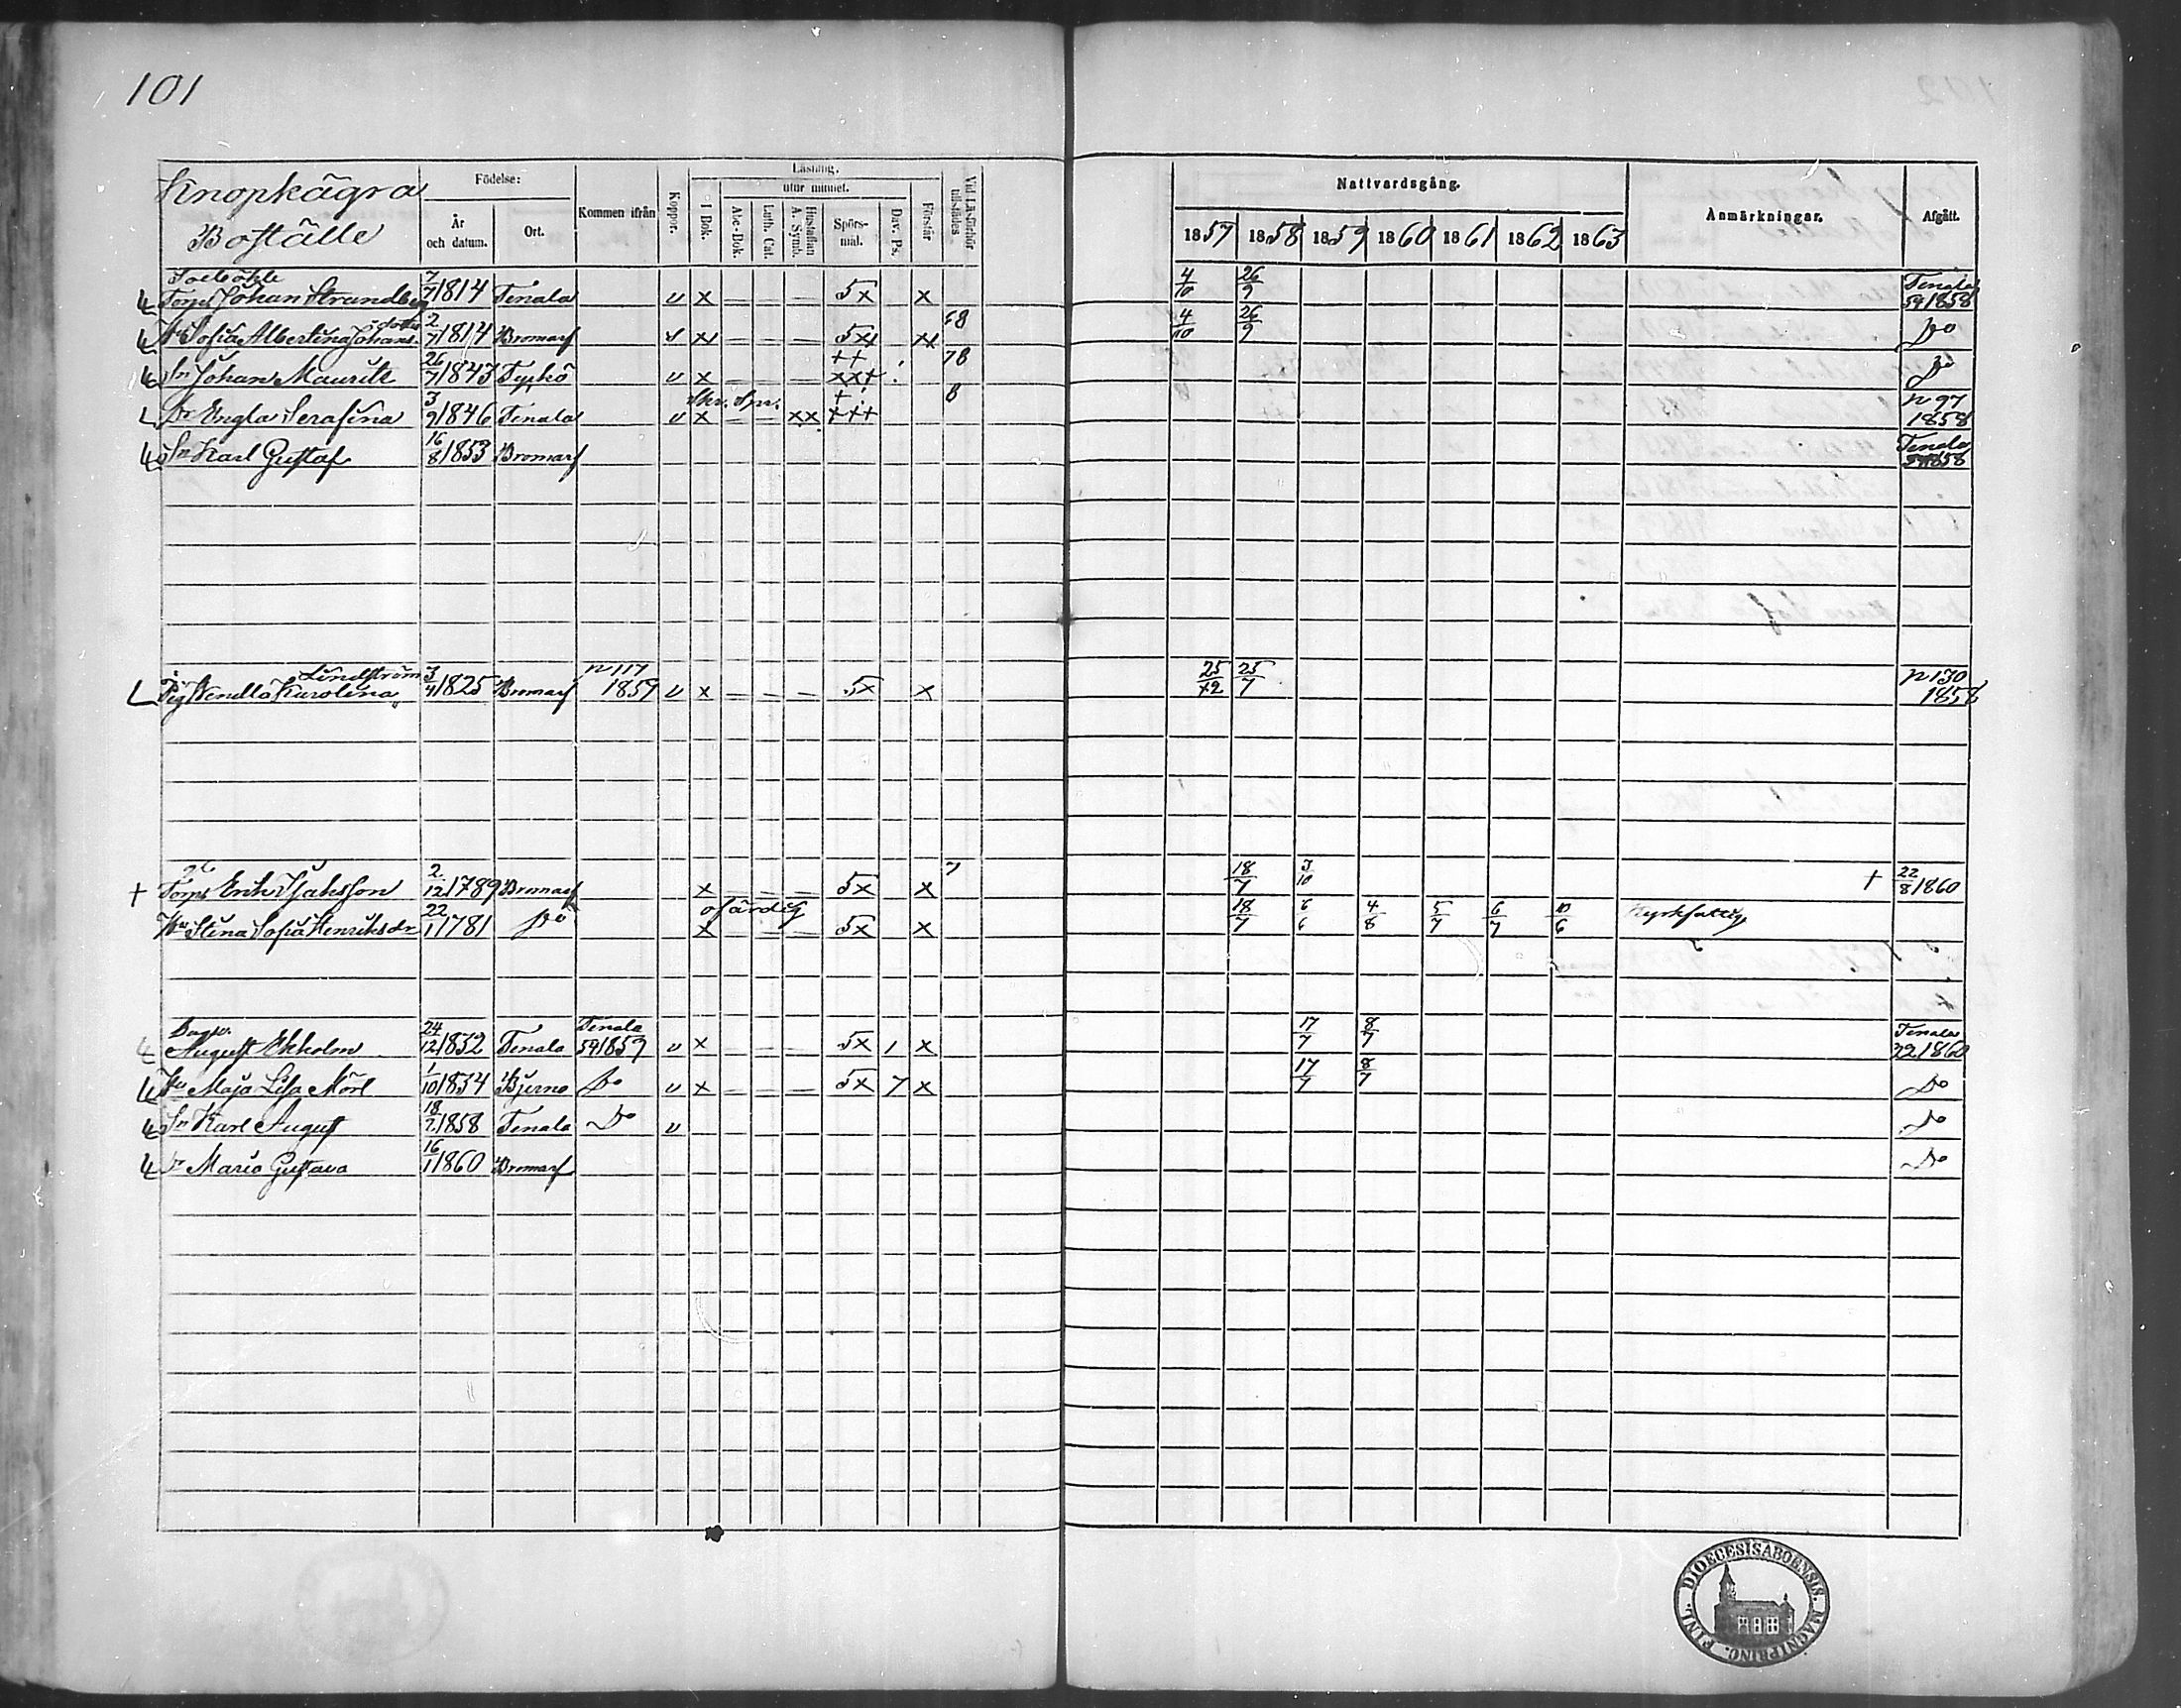 101
Knopkägra
Boställe
Födelse:
År och datum.
Ort.
Kommen ifrån
Koppor.
Läsning.
utur minnet.
I Bok.
Abc-Bok.
Luth. Cat.
Hustaflan A. Symb.
Spörsmål.
Dav. Ps.
Förstår
Nattvardsgång.
1857 1858 1859 1860 1861 1862 1863
Anmärkningar.
Afgått.
Torp. Johan Strandberg 7/7 1814 Tenala v x — — — 5x x 4/10 26/9 Tenala 59 1858
Hu Sofia Albertina Johansdotter 2/7 1814 Bromarf 5x 68 4/10 26/9 Do
Sn Johan Maurits 26/7 1843 v x 78 Do
Dr Engla Serafina 3/9 1846 Tenala v x — — xx +++ 8 p 97 1858
Sn Karl Gustaf 16/8 1853 Bromarf Tenala 59 1858
Pig Vendla Karolina Lindström 3/4 1825 Bromarf p 117 1857 v x — — — 5x x 25/12 25/7 p 130 1858
† Torp. Erik Isaksson 2/12 1789 Bromarf x — — — 5x x 7 18/7 3/10 † 22/8 1860
ofärdig
Hu Stina Sofia Henriksdr 22/1 1781 Do x 5x x 18/7 6/6 4/8 5/7 6/7 10/6 Kyrkfattig
August Ekholm 24/12 1832 Tenala Tenala 59 1859 v x — — — 5x 1 x 17/7 8/7 Tenala 22 1860
Hu Maja Lisa Mört 1/10 1834 Bjerno Do v x — — — 5x 7 x 17/7 8/7 Do
Sn Karl August 18/2 1858 Tenala Do v Do
Dr Maria Gustava 16/1 1860 Bromarf Do
DIOECESIS ABOENSIS. MAGNI PRINC. FINL.